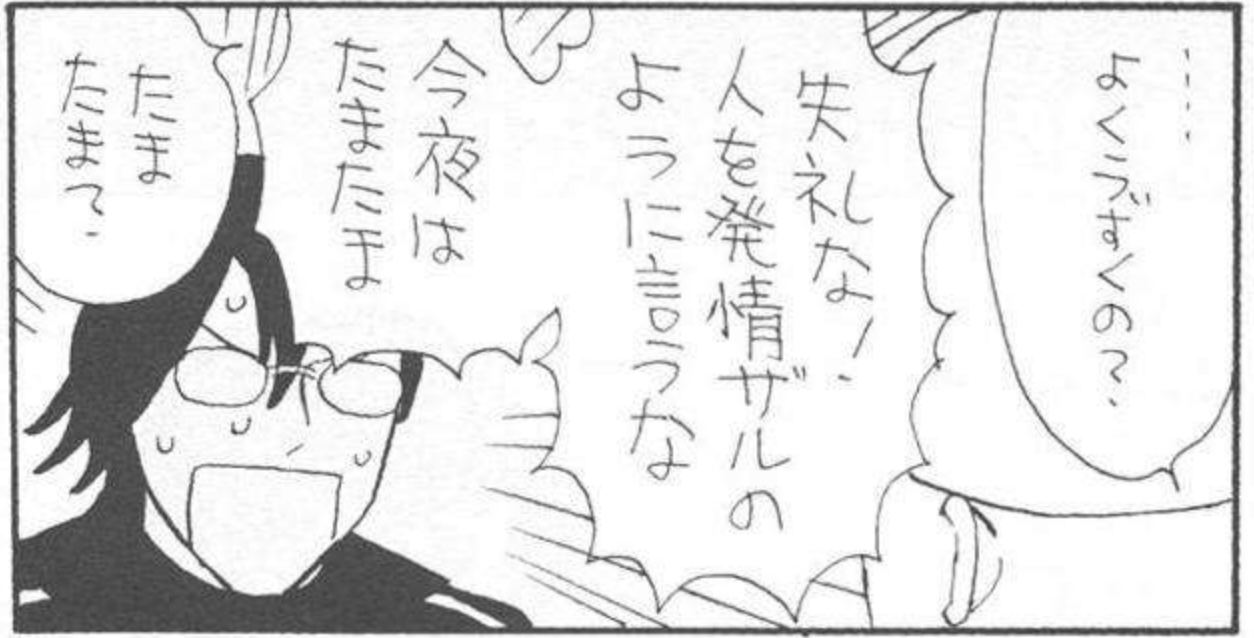 ‥‥
よくうずくの?
失礼な!
人を発情ザルの
ように言うな
今夜は
たまたま
たま
たま?